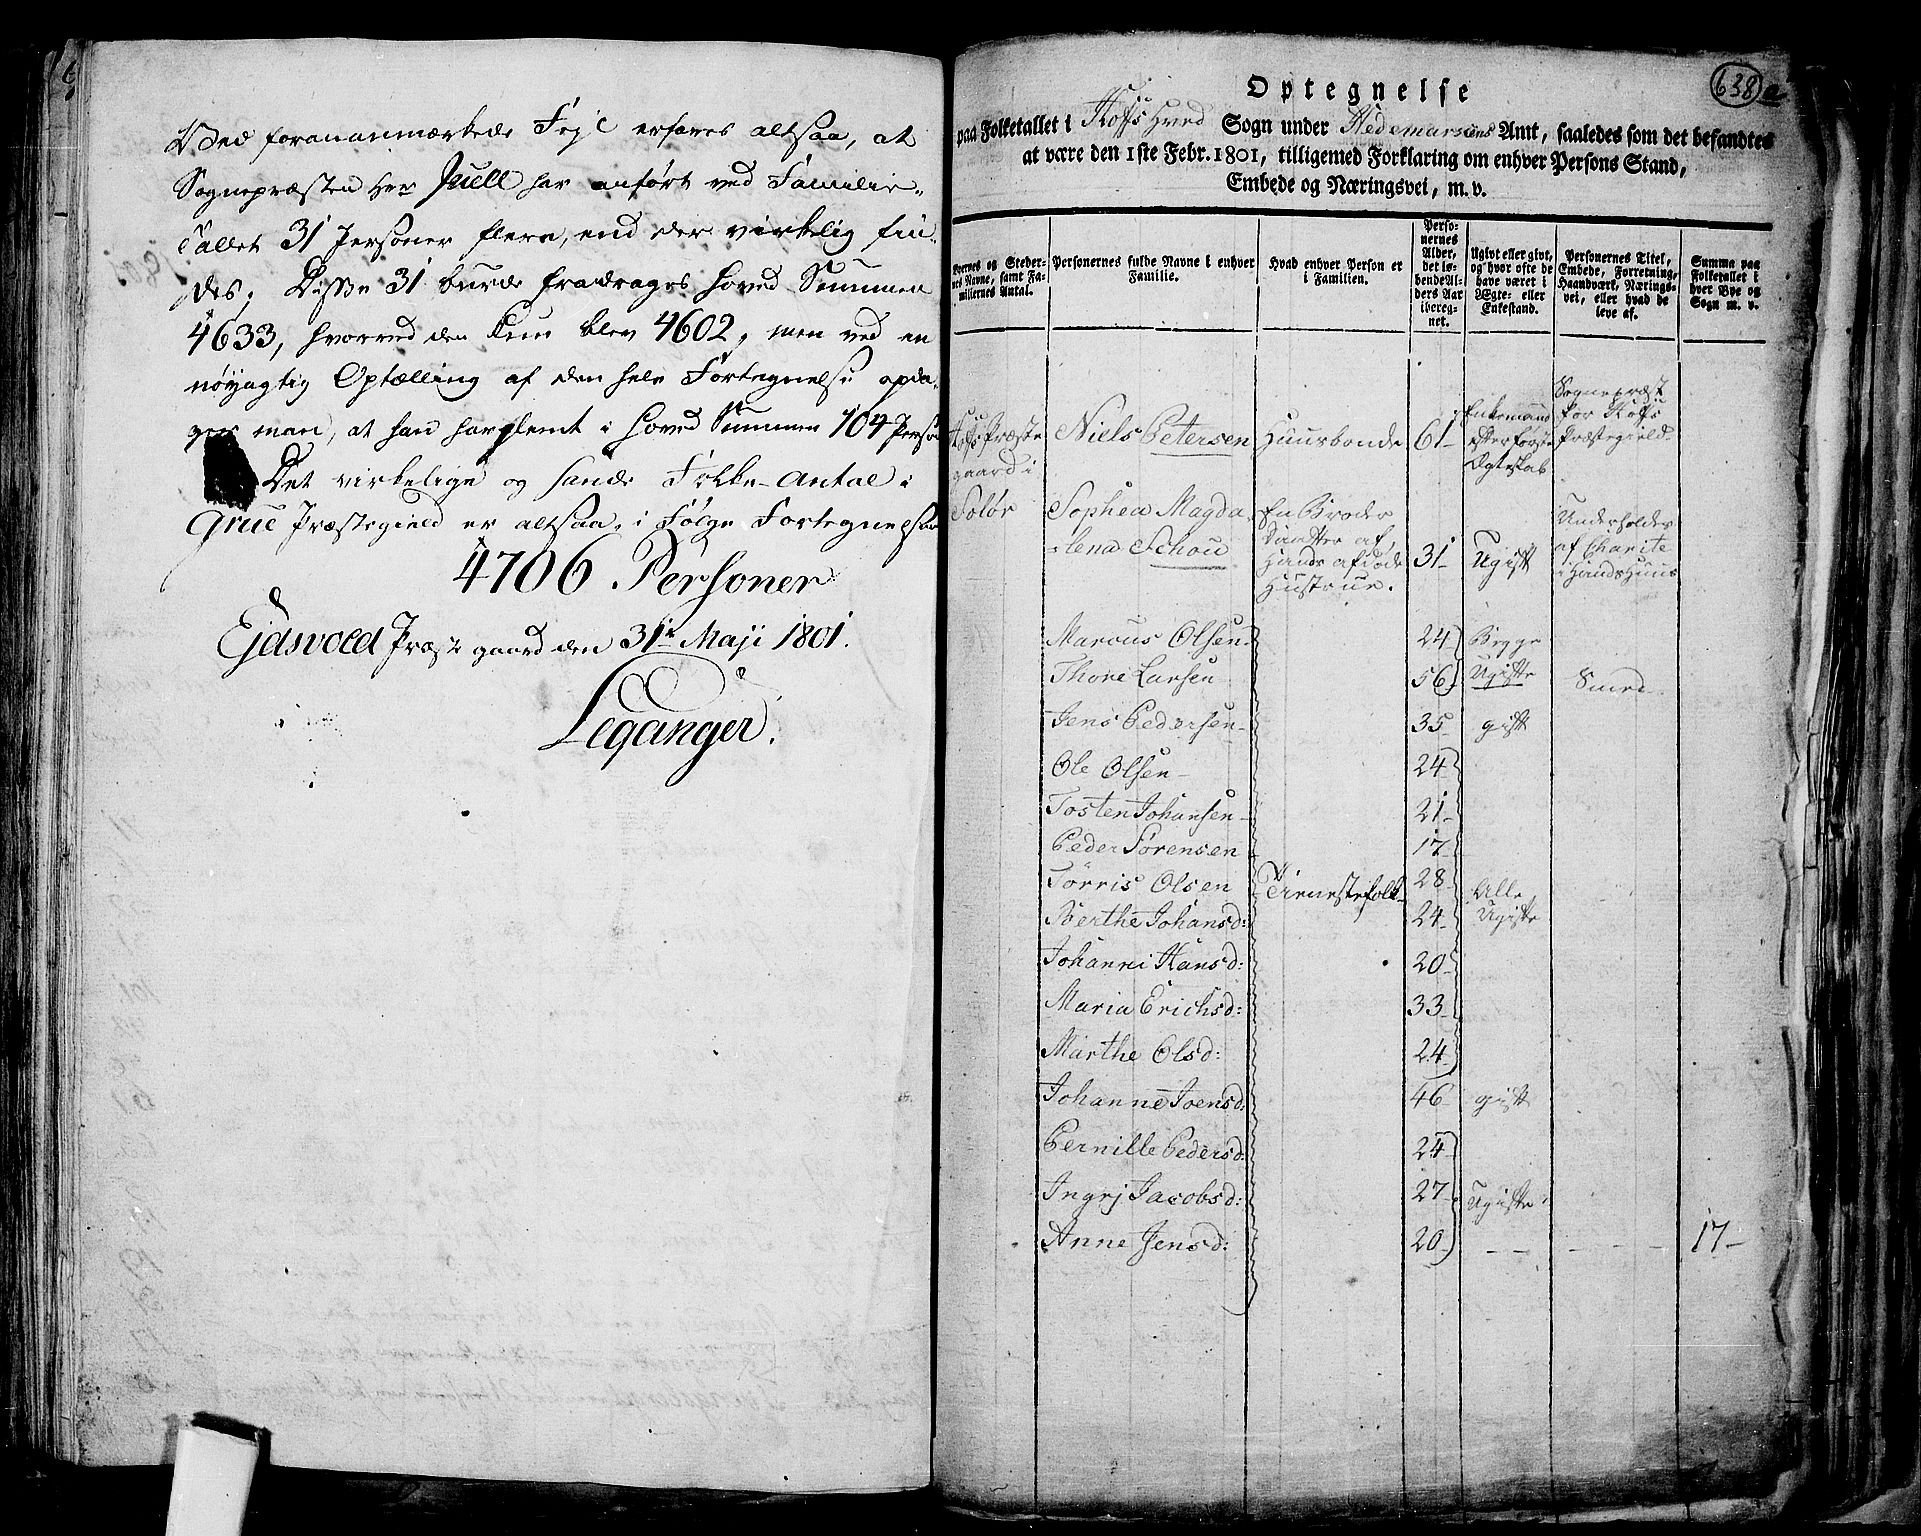 Ved forananmærkede Fejl erfares altsaa, at
Sognepræsten Her Juell har anført ved Familie-
Tallet 31 Personer flere, end der virkelig fin-
des. Disse 31 burde fradrages Hoved Summen
4633, hvorved den kun blev 4602, men ved en
nöyagtig Optælling af den hele Fortegnelse opda-
ger man, at han har glemt i Hoved Summen 104 Perso
Det virkelige og sande Folke-Antal i
Grue Præstegield er altsaa, i Følge Fortegnelsen
4706 Personer
Ejdsvold Præstegaard den 31te Maji 1801.
Leganger.
638 a
Optegnelse
paa Folketallet i Hoffs Hoved Sogn under Hedemarkens Amt, saaledes som det befandtes
at være den 1ste Febr. 1801, tilligemed Forklaring om enhver Persons Stand,
Embede og Næringsvei, m. v.
Byernes og Steder-
nes Navne, samt Fa-
miliernes Antal.
Personernes fulde Navne i enhver
Familie.
Hvad enhver Person er
i Familien.
Perso-
nernes
Alder,
det lø-
bende Al-
ders Aar
iberegnet.
Ugivt eller givt,
og hvor ofte de
have været i
Ægte- eller
Enkestand.
Personernes Titel,
Embede, Forretning,
Haandværk, Nærings-
vei, eller hvad de
leve af.
Summa paa
Folketallet i
hver Bye og
Sogn m. v.
Hofs Præste
gaard i
Solør
Niels Petersen Huusbonde 61 Enkemand efter første Ægteskab Sognepræst for Hofs Præstegield
Sophea Magda-
lena Schou En Broder Daatter af Hands afdøde Hustrue. 31 Ugift Underholdes af Charite i Hands Huus
Marcus Olsen 24 Begge
Thore Larsen 56 Ugifte Smed
Jens Pedersen 35 gift
Ole Olsen 24
Tosten Johansen 21
Peder Sørensen 17
Tørris Olsen Tienestefolk 28 Alle
Berthe Johansd: 24 Ugifte
Johanne Hansd: 20
Maria Erichsd: 33
Marthe Olsd: 24
Johanne Joensd: 46 gift
Pernille Pedersd: 24
Ingrj Jacobsd: 27 Ugifte
Anne Jensd: 20 17